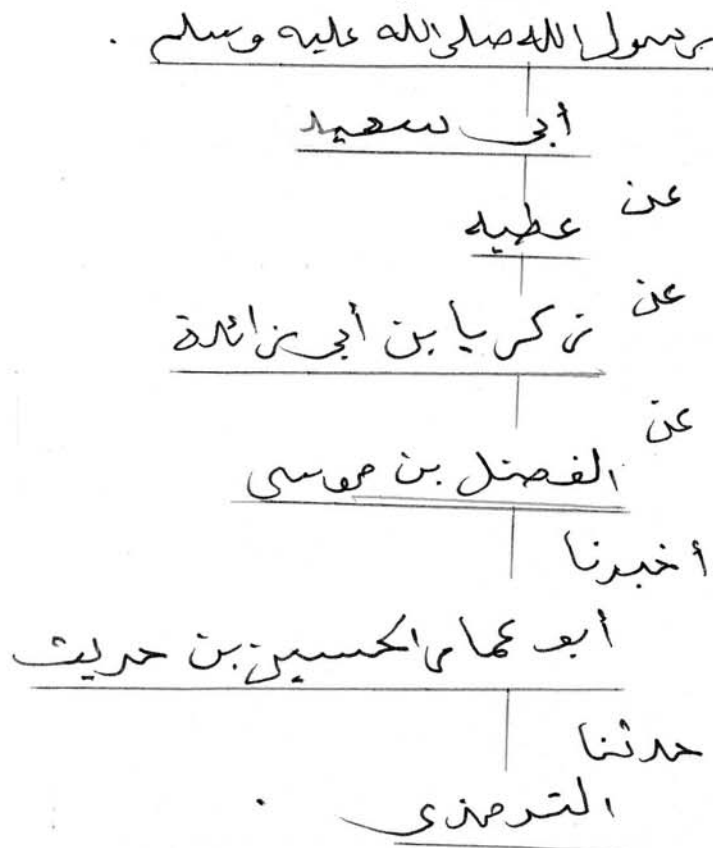 رسول الله صلى الله عليه وسلم .
أبي سعيد
عن
عطيه
عن
زكريا بن أبي زائدة
عن
الفضل بن موسى
أخبرنا
أبو عمار الحسين بن حريث
حدثنا
الترمذى .